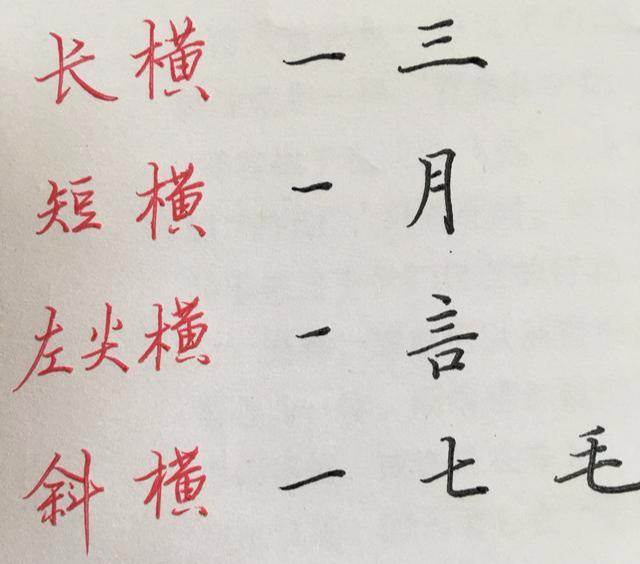 长横 一 三
短横 一 月
左尖横 一 言
斜横 一 七 毛